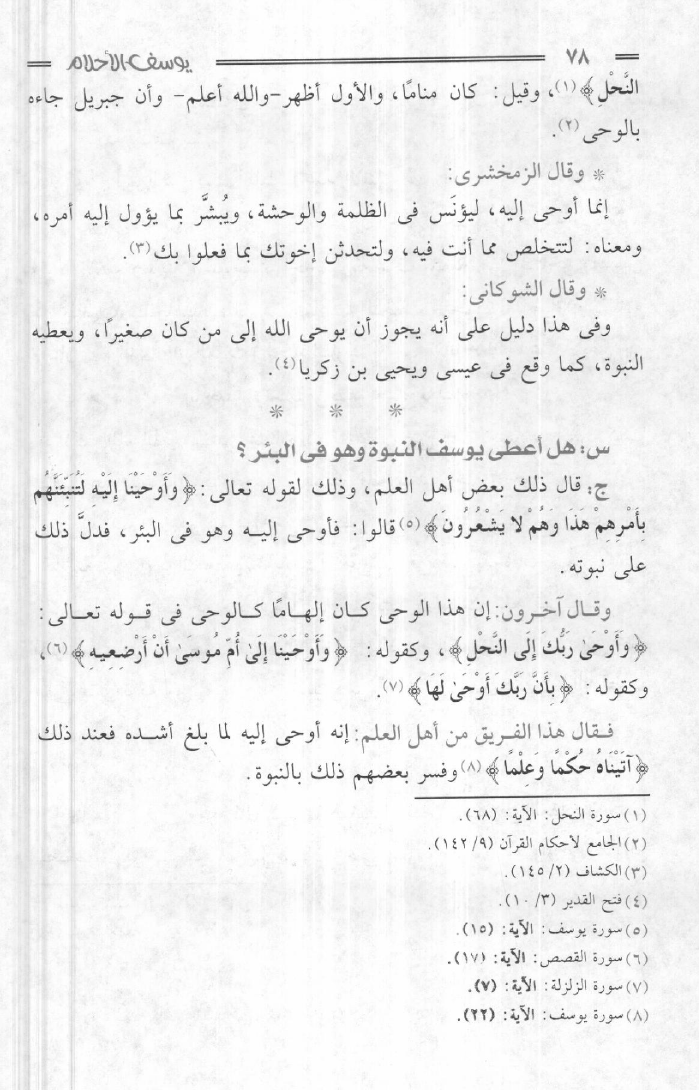 ٧٨ يوسف الأحلام
النَّحْلِ﴾(١)، وقيل: كان منامًا، والأول أظهر-والله أعلم- وأن جبريل جاءه
بالوحى(٢).
* وقال الزمخشرى:
إنما أوحى إليه، ليؤنَس فى الظلمة والوحشة، ويُبشَّر بما يؤول إليه أمره،
ومعناه: لتتخلص مما أنت فيه، ولتحدثن إخوتك بما فعلوا بك(٣).
* وقال الشوكانى:
وفى هذا دليل على أنه يجوز أن يوحى الله إلى من كان صغيرًا، ويعطيه
النبوة، كما وقع فى عيسى ويحيى بن زكريا(٤).
* * *
س: هل أعطى يوسف النبوة وهو فى البئر؟
ج: قال ذلك بعض أهل العلم، وذلك لقوله تعالى: ﴿وَأَوْحَيْنَا إِلَيْهِ لَتُنَبِّئَنَّهُم
بِأَمْرِهِمْ هَذَا وَهُمْ لا يَشْعُرُونَ﴾(٥) قالوا: فأوحى إليه وهو فى البئر، فدلَّ ذلك
على نبوته.
وقال آخرون: إن هذا الوحى كان إلهامًا كالوحى فى قوله تعالى:
﴿وَأَوْحَىٰ رَبُّكَ إِلَى النَّحْلِ﴾، وكقوله: ﴿وَأَوْحَيْنَا إِلَىٰ أُمِّ مُوسَىٰ أَنْ أَرْضِعِيهِ﴾(٦)،
وكقوله: ﴿بِأَنَّ رَبَّكَ أَوْحَىٰ لَهَا﴾(٧).
فقال هذا الفريق من أهل العلم: إنه أوحى إليه لما بلغ أشده فعند ذلك
﴿آتَيْنَاهُ حُكْمًا وَعِلْمًا﴾(٨) وفسر بعضهم ذلك بالنبوة.
(١) سورة النحل: الآية: (٦٨).
(٢) الجامع لأحكام القرآن (٩/ ١٤٢).
(٣) الكشاف (٢/ ١٤٥).
(٤) فتح القدير (٣/ ١٠).
(٥) سورة يوسف: الآية: (١٥).
(٦) سورة القصص: الآية: (١٧).
(٧) سورة الزلزلة: الآية: (٧).
(٨) سورة يوسف: الآية: (٢٢).